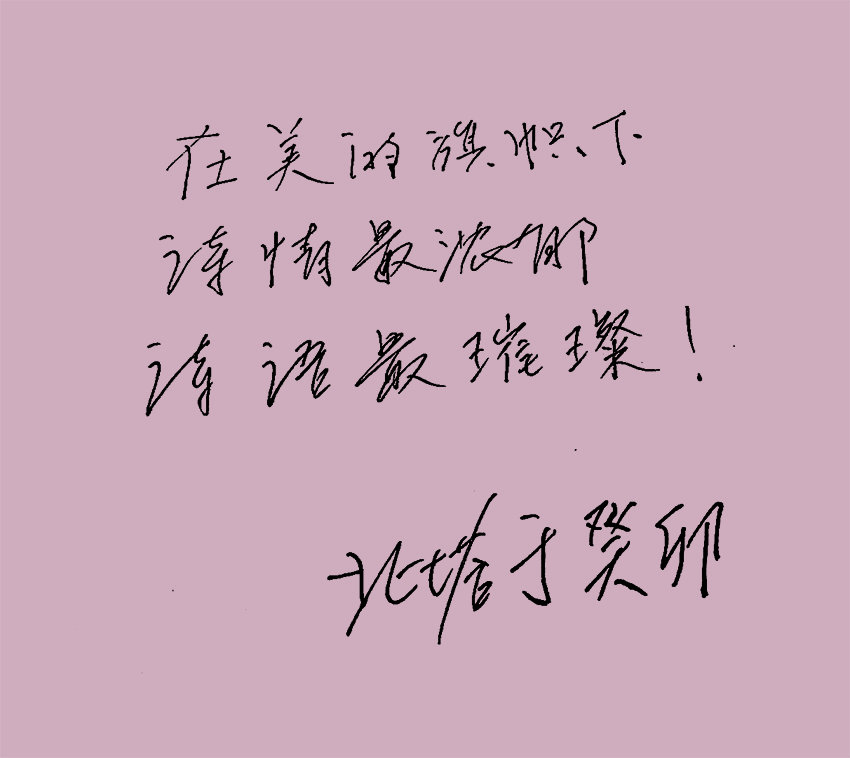 在美的旗帜下
诗情最浓郁
诗语最璀璨！
北塔于癸卯